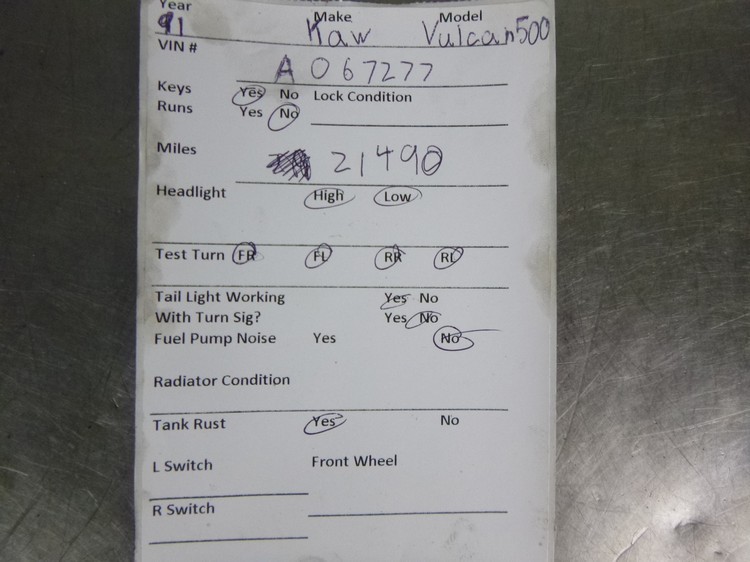 Year Make Model
91 Kaw Vulcan500
VIN #
A 067277
Keys Yes No Lock Condition
Runs Yes No
Miles 21490
Headlight High Low
Test Turn FR FL RR RL
Tail Light Working Yes No
With Turn Sig? Yes No
Fuel Pump Noise Yes No
Radiator Condition
Tank Rust Yes No
L Switch Front Wheel
R Switch